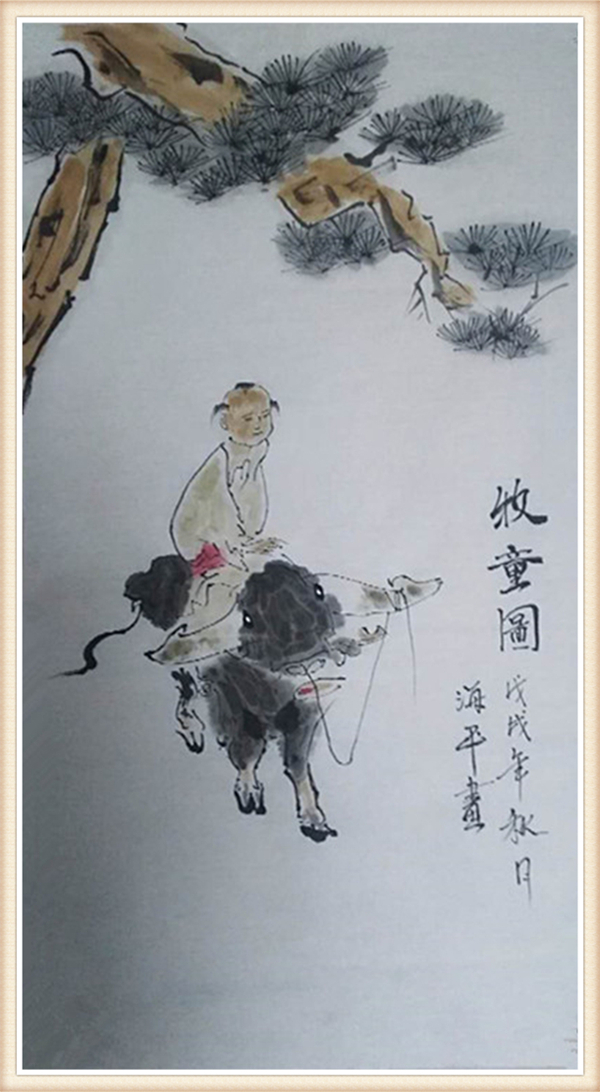 牧童圖
戊戌年秋月
海平畫